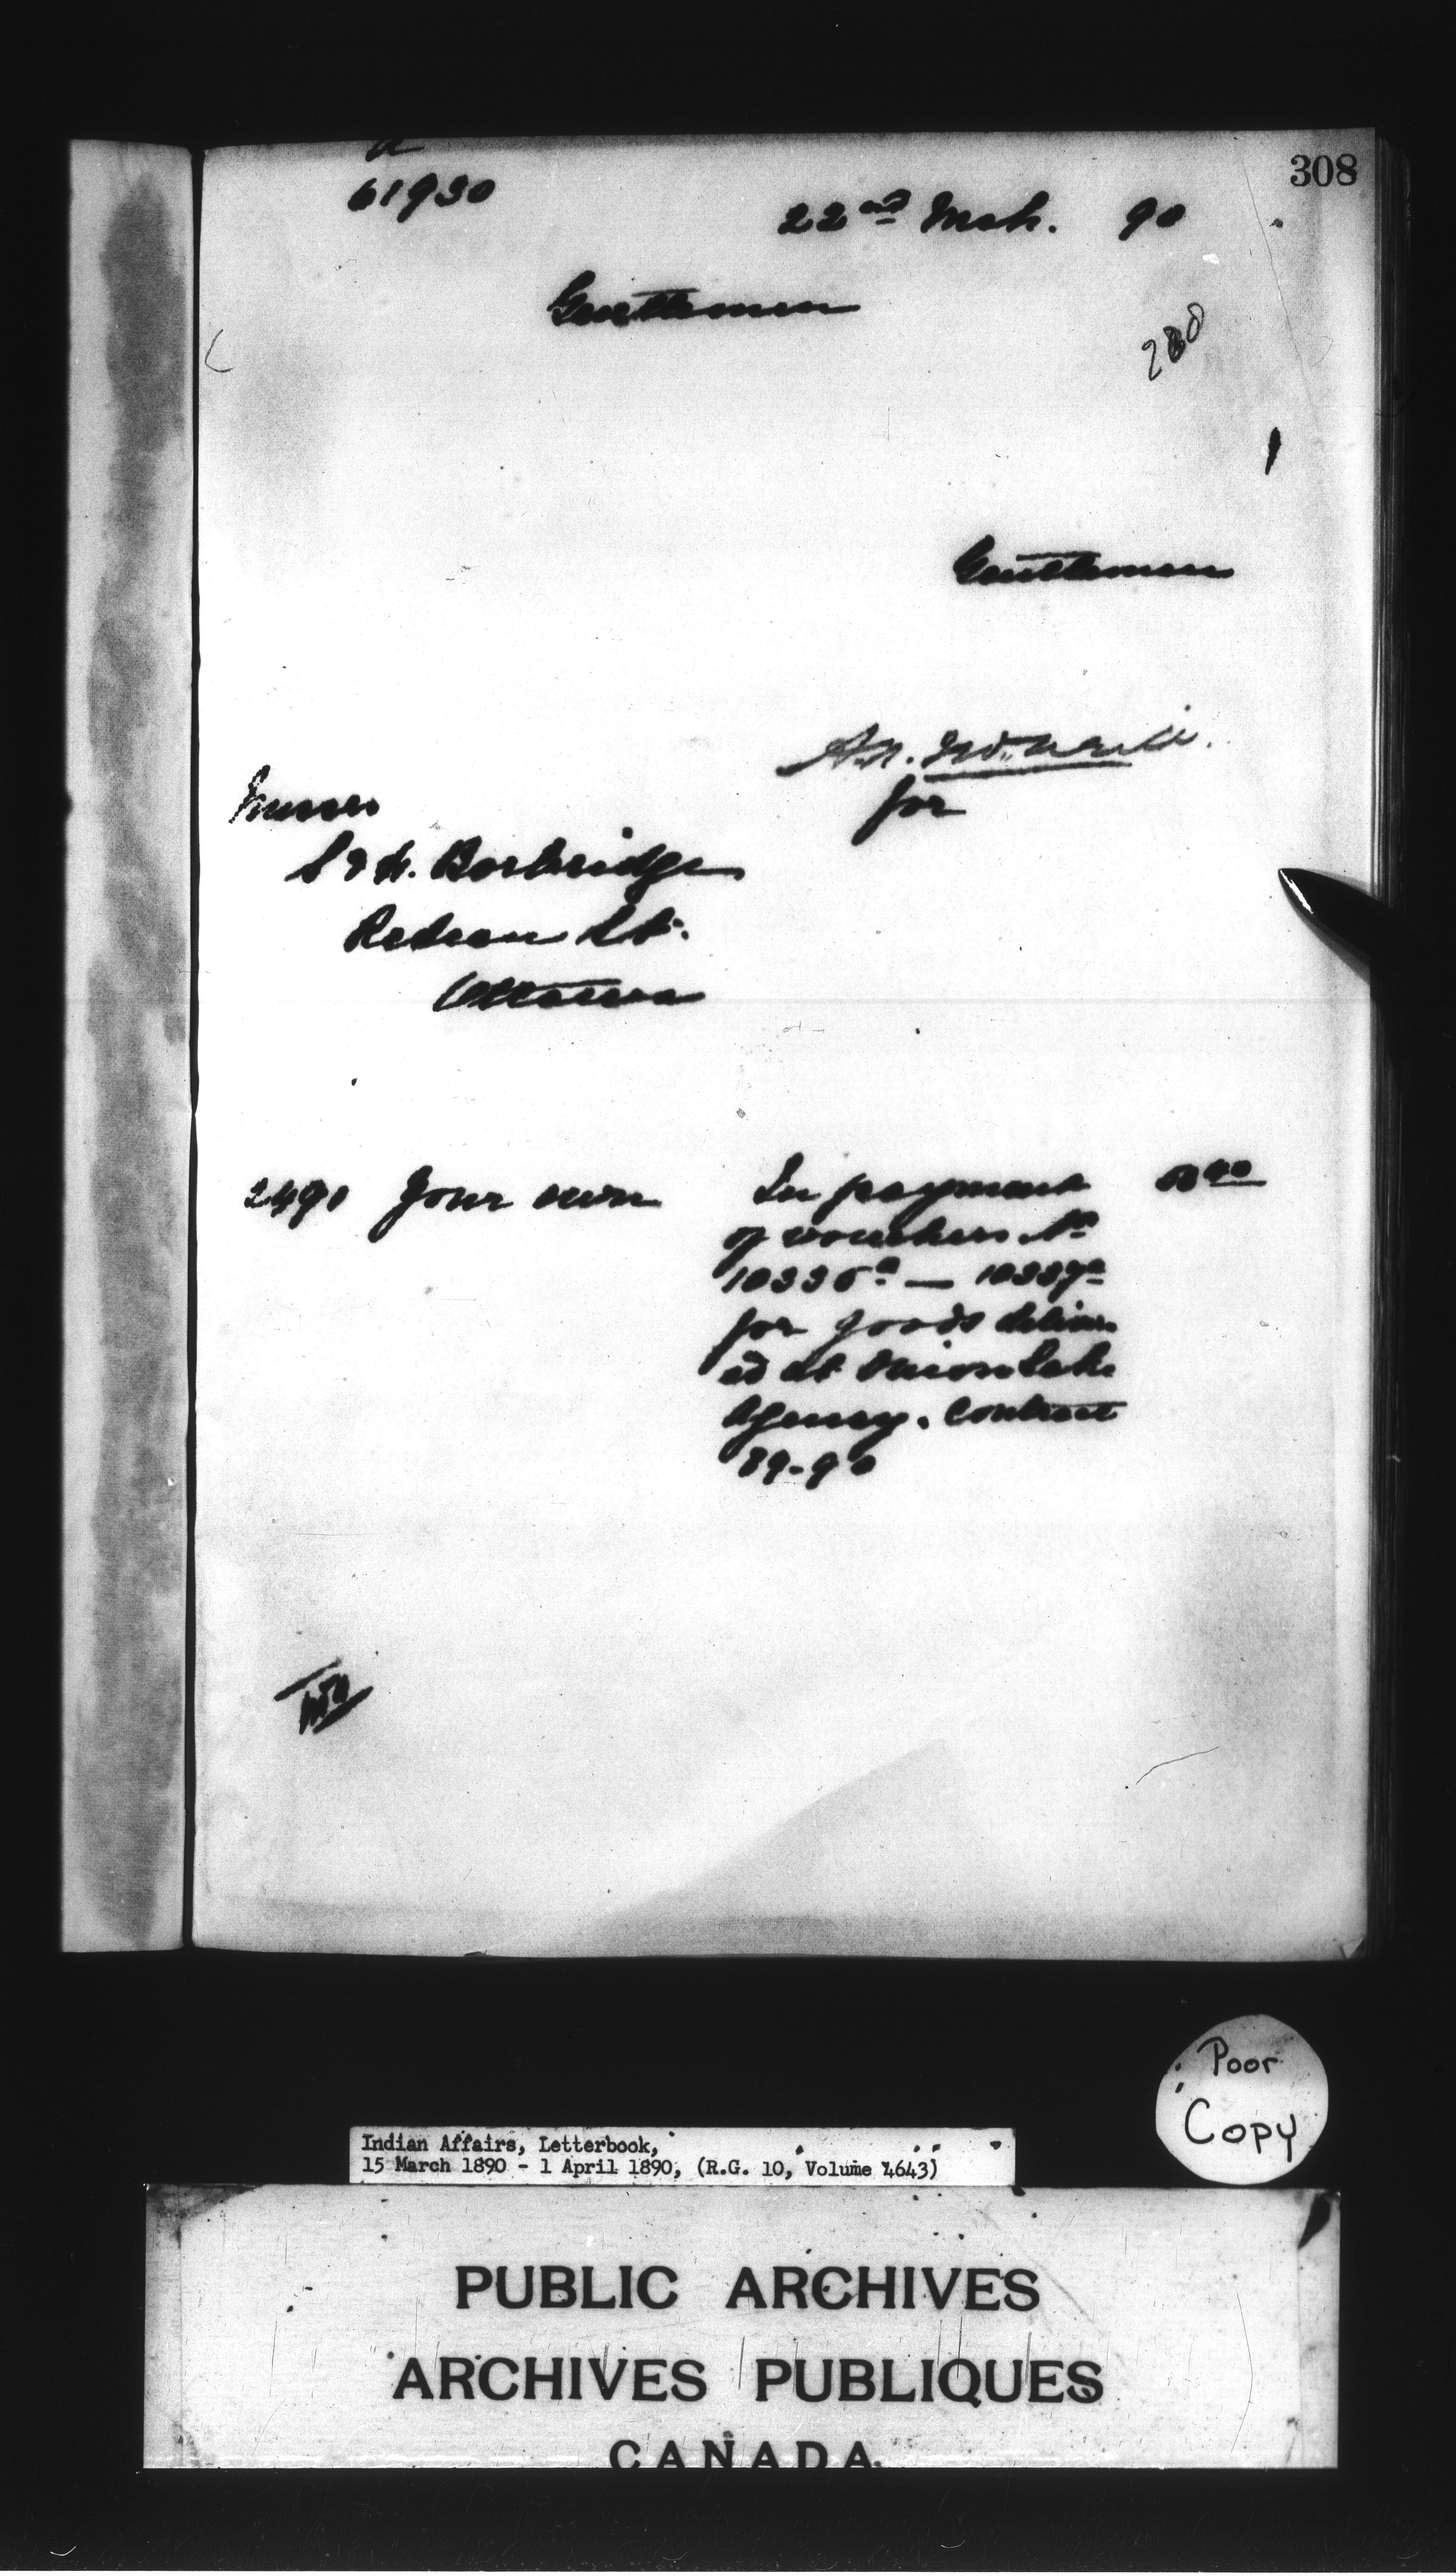 308
61930
22nd Mch. 90
Gentlemen
280
Gentlemen
for
Messrs
S & H. Borbridge
Rideau St.
Ottawa
2490 Your own In payment
of vouchers No
10336a — 10337a
for goods deliver
ed at Onion Lake
Agency. Contract
89-90
Poor
Copy
Indian Affairs, Letterbook,
15 March 1890 - 1 April 1890, (R.G. 10, Volume 4643)
PUBLIC ARCHIVES
ARCHIVES PUBLIQUES
CANADA